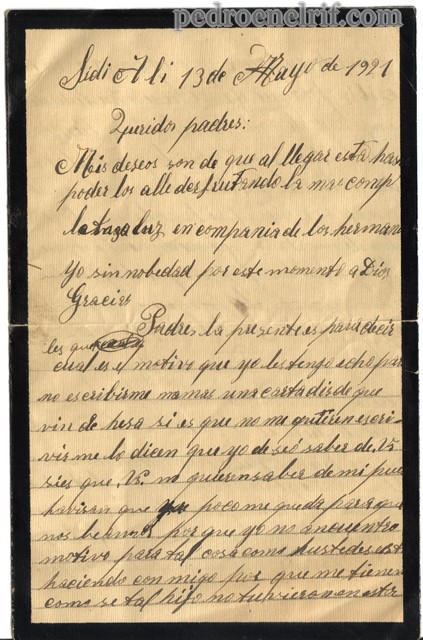 pedroenelrif.com
Sidi Ali 13 de Mayo de 1921
Queridos padres:
Mis deseos son de que al llegar esta
poder los alle desfrutando la mas comp
leta luz en compania de los herman
Yo sin nobedad por este momento a Dios
Gracias
Padres la presente es para decir
les que
cual es e motivo que yo les tengo echo par
no escribirme mamas una carta disde que
vin de hesa si es que no me qutiren escri
virme lo dicen que yo deseó saber de V.S
sies que V.S. ni quieren saber de mi pue
havisan que poco me queda para que
nos beamos por que yo no ancuentro
motivo para tal cosa como ustedes est
haciendo con migo por que me tienen
como se tal hifo no tubvieran en esta